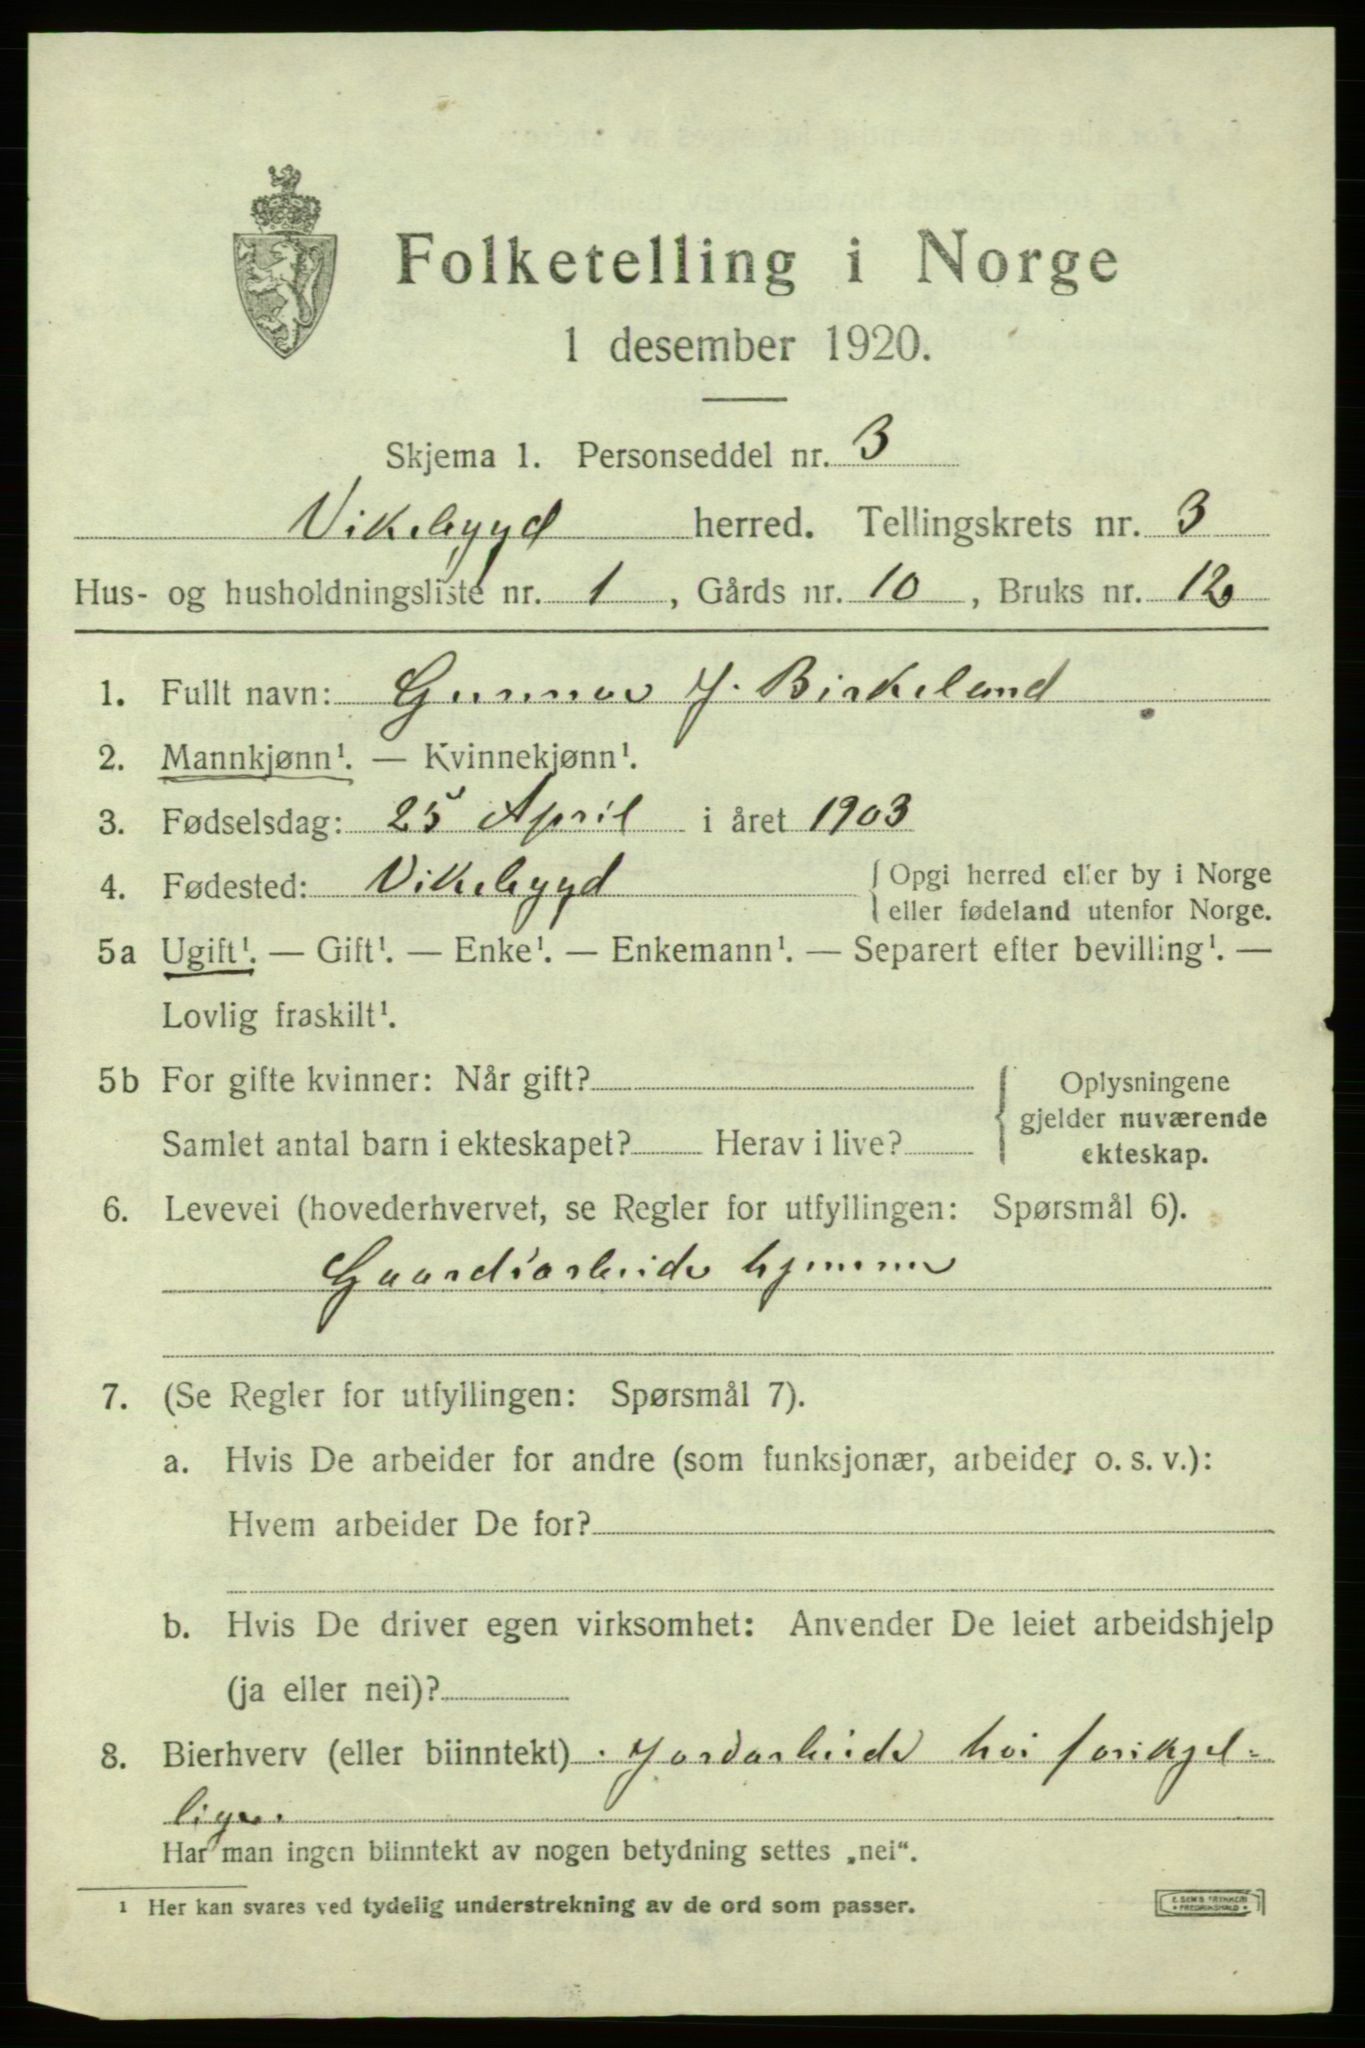 Folketelling i Norge
1 desember 1920.
Skjema 1. Personseddel nr. 3
Vikebygd herred. Tellingskrets nr. 3
Hus- og husholdningsliste nr. 1, Gårds nr. 10, Bruks nr. 12
1. Fullt navn: Gunnar J. Birkeland
2. Mannkjønn¹. — Kvinnekjønn¹.
3. Fødselsdag: 25 April i året 1903
4. Fødested: Vikebygd
{Opgi herred eller by i Norge
eller fødeland utenfor Norge.
5a Ugift¹. — Gift¹. — Enke¹. — Enkemann¹. — Separert efter bevilling¹. —
Lovlig fraskilt¹.
5b For gifte kvinner: Når gift?
Samlet antal barn i ekteskapet? Herav i live?
{Oplysningene
gjelder nuværende
ekteskap.
6. Levevei (hovederhvervet, se Regler for utfyllingen: Spørsmål 6).
Gaardsarbeide hjemme
7. (Se Regler for utfyllingen: Spørsmål 7).
a. Hvis De arbeider for andre (som funksjonær, arbeider o. s. v.):
Hvem arbeider De for?
b. Hvis De driver egen virksomhet: Anvender De leiet arbeidshjelp
(ja eller nei)?
8. Bierhverv (eller biinntekt) Jordarbeide hoi forskjel-
lige.
Har man ingen biinntekt av nogen betydning settes „nei“.
¹ Her kan svares ved tydelig understrekning av de ord som passer.